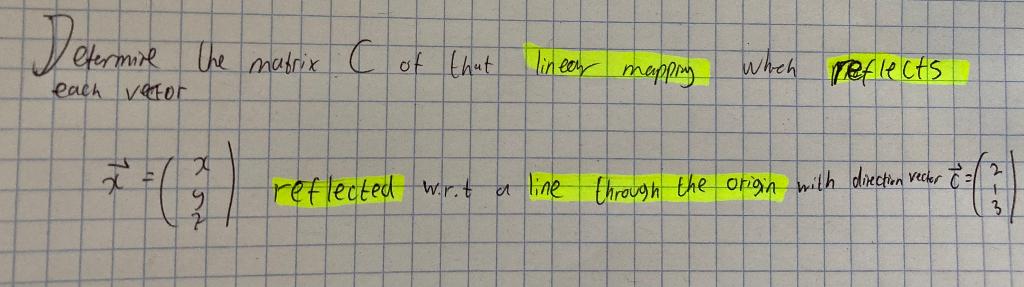 Determine the matrix C of that linear mapping which reflects
each vector
x⃗ = (x y z) reflected w.r.t a line through the origin with direction vector c⃗ = (2 1 3)